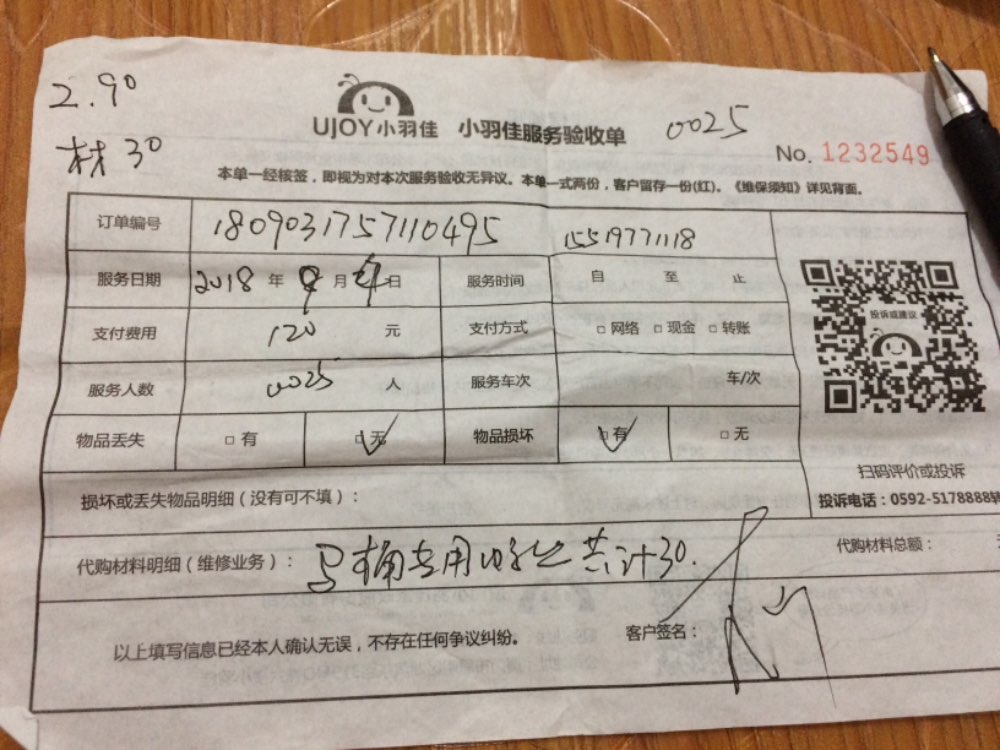 2.90
材 30
UJOY小羽佳 小羽佳服务验收单 0025
No. 1232549
本单一经核签，即视为对本次服务验收无异议。本单一式两份，客户留存一份(红)。《维保须知》详见背面。
订单编号 1809031757110495 15519771118
服务日期 2018 年 9 月 4 日 服务时间 自 至 止
支付费用 120 元 支付方式 □ 网络 □ 现金 □ 转账
投诉或建议
服务人数 0025 人 服务车次 车/次
物品丢失 □ 有 □ 无 物品损坏 □ 有 □ 无
扫码评价或投诉
损坏或丢失物品明细（没有可不填）：
投诉电话：0592-5178888转
代购材料明细（维修业务）： 马桶专用 共计30.
代购材料总额：
以上填写信息已经本人确认无误，不存在任何争议纠纷。
客户签名：